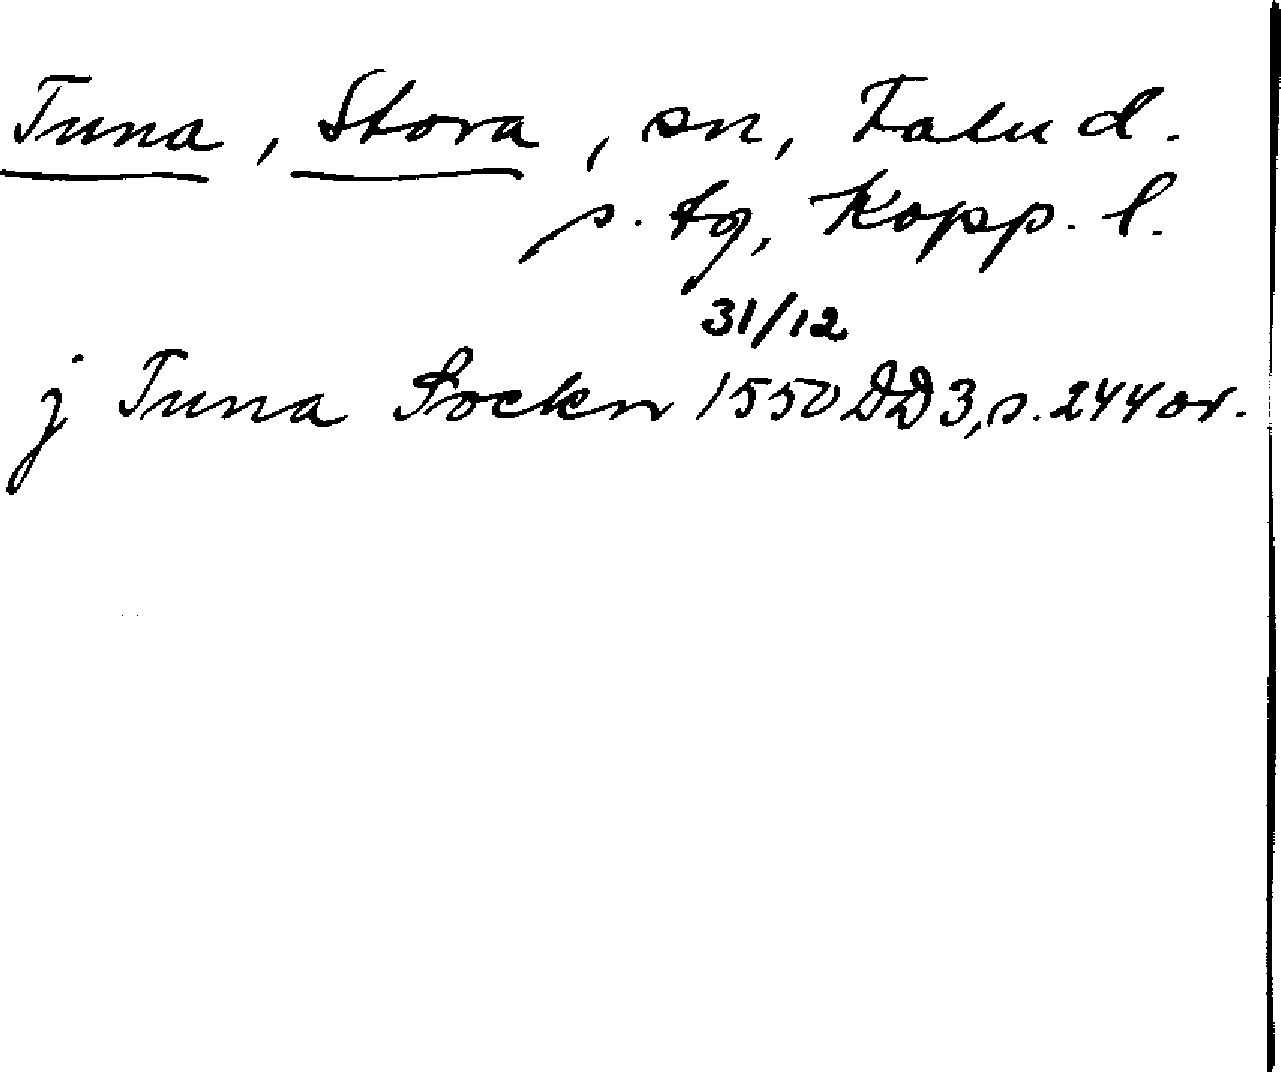 Tuna, Stora, sn, Falu d.
s. tg, Kopp. l.
31/12
j Tuna Sockn 1550 DD3, s. 244 or.